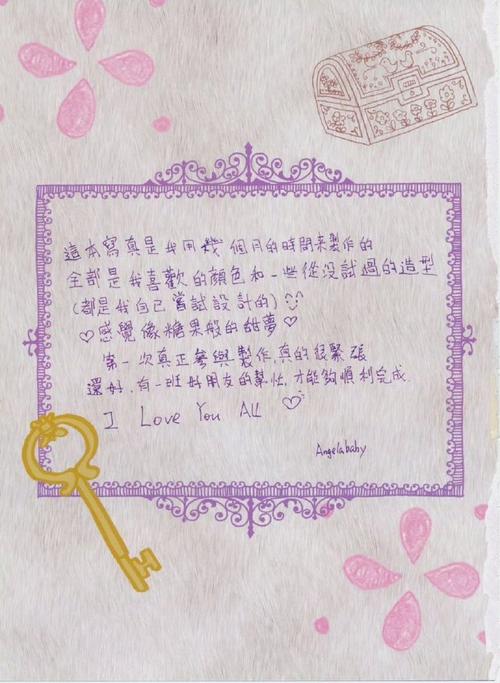 這本寫真是我用幾個月的時間來製作的
全都是我喜歡的顏色和一些從沒試過的造型
(都是我自己嘗試設計的)
♡感覺像糖果般的甜夢♡
第一次真正參與製作,真的很緊張
還好,有一班好朋友的幫忙,才能夠順利完成..
I Love You All ♡
Angelababy